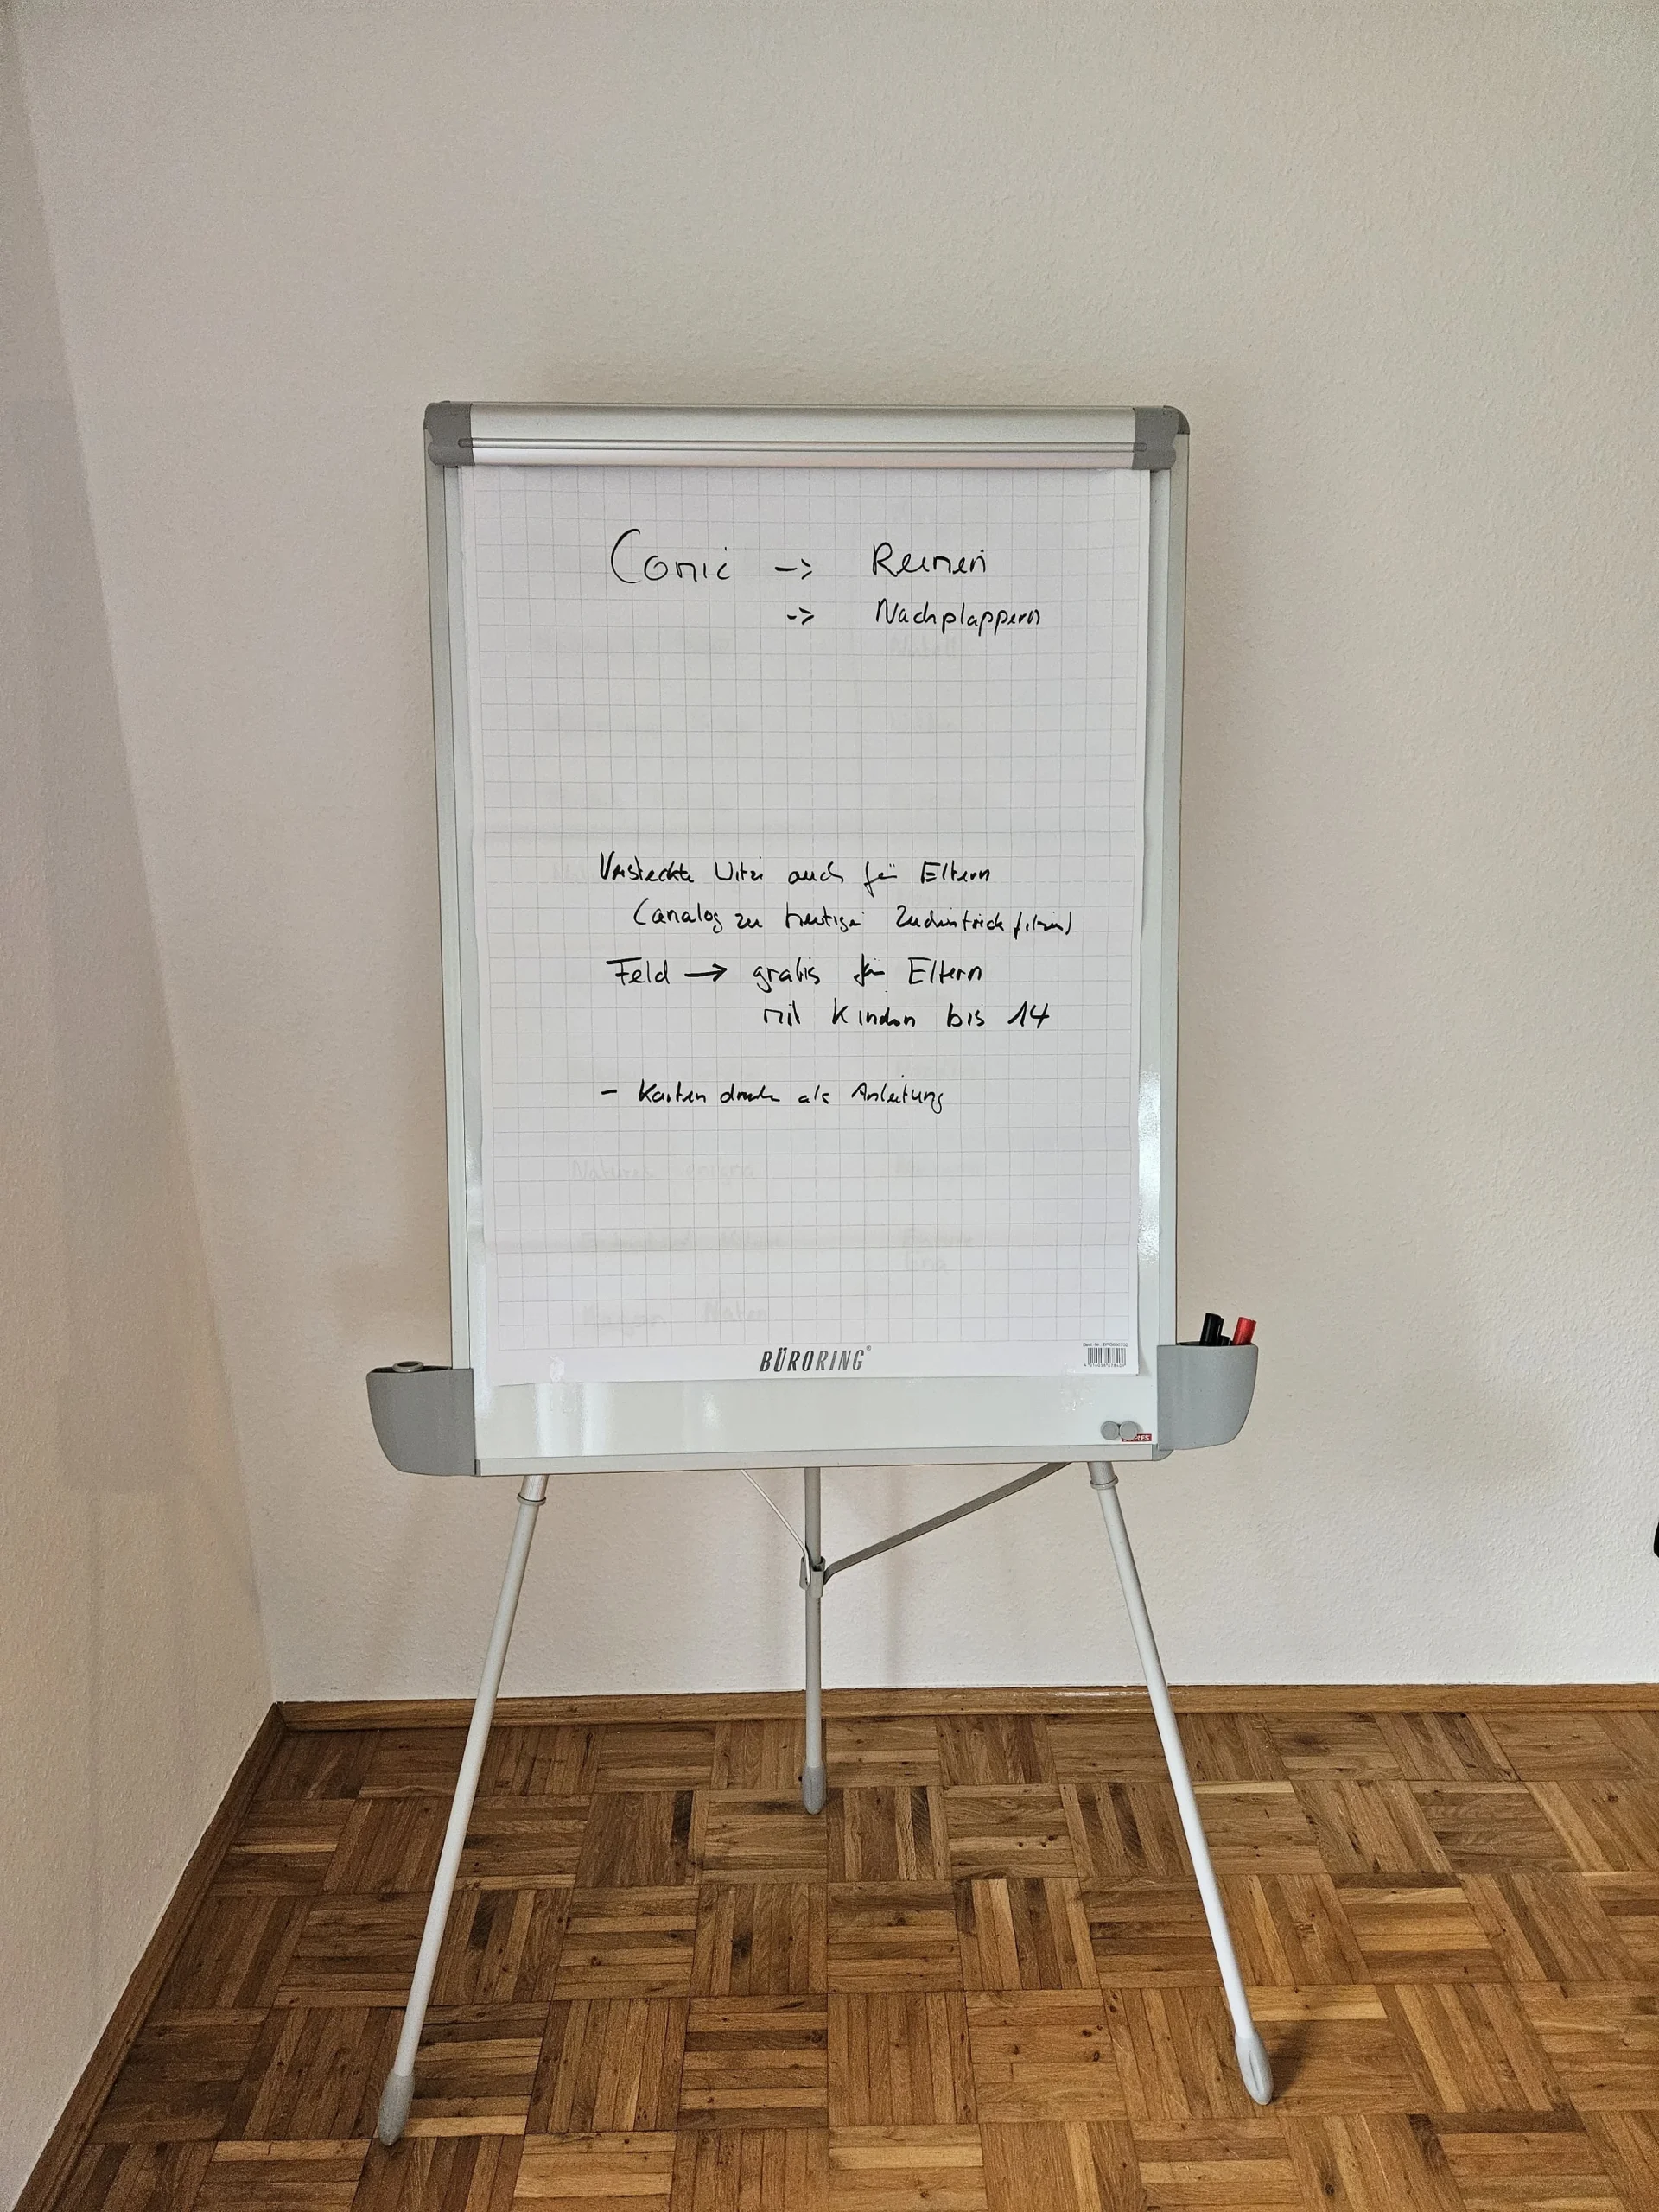 Comic -> Reimen
-> Nachplappern
Versteckte Witze auch für Eltern
(analog zu heutigen Zeichentrickfilmen)
Feld -> gratis für Eltern
mit Kindern bis 14
- Karten drucken als Anleitung
Natures enigma
BÜRORING®